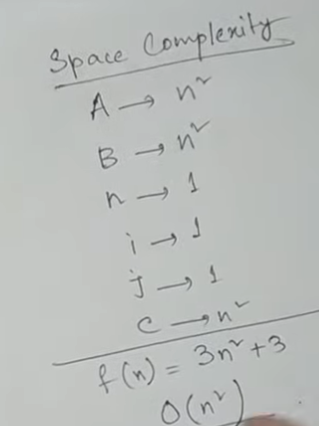 Space Complexity
A → n²
B → n²
n → 1
i → 1
j → 1
C → n²
f(n) = 3n² + 3
O(n²)